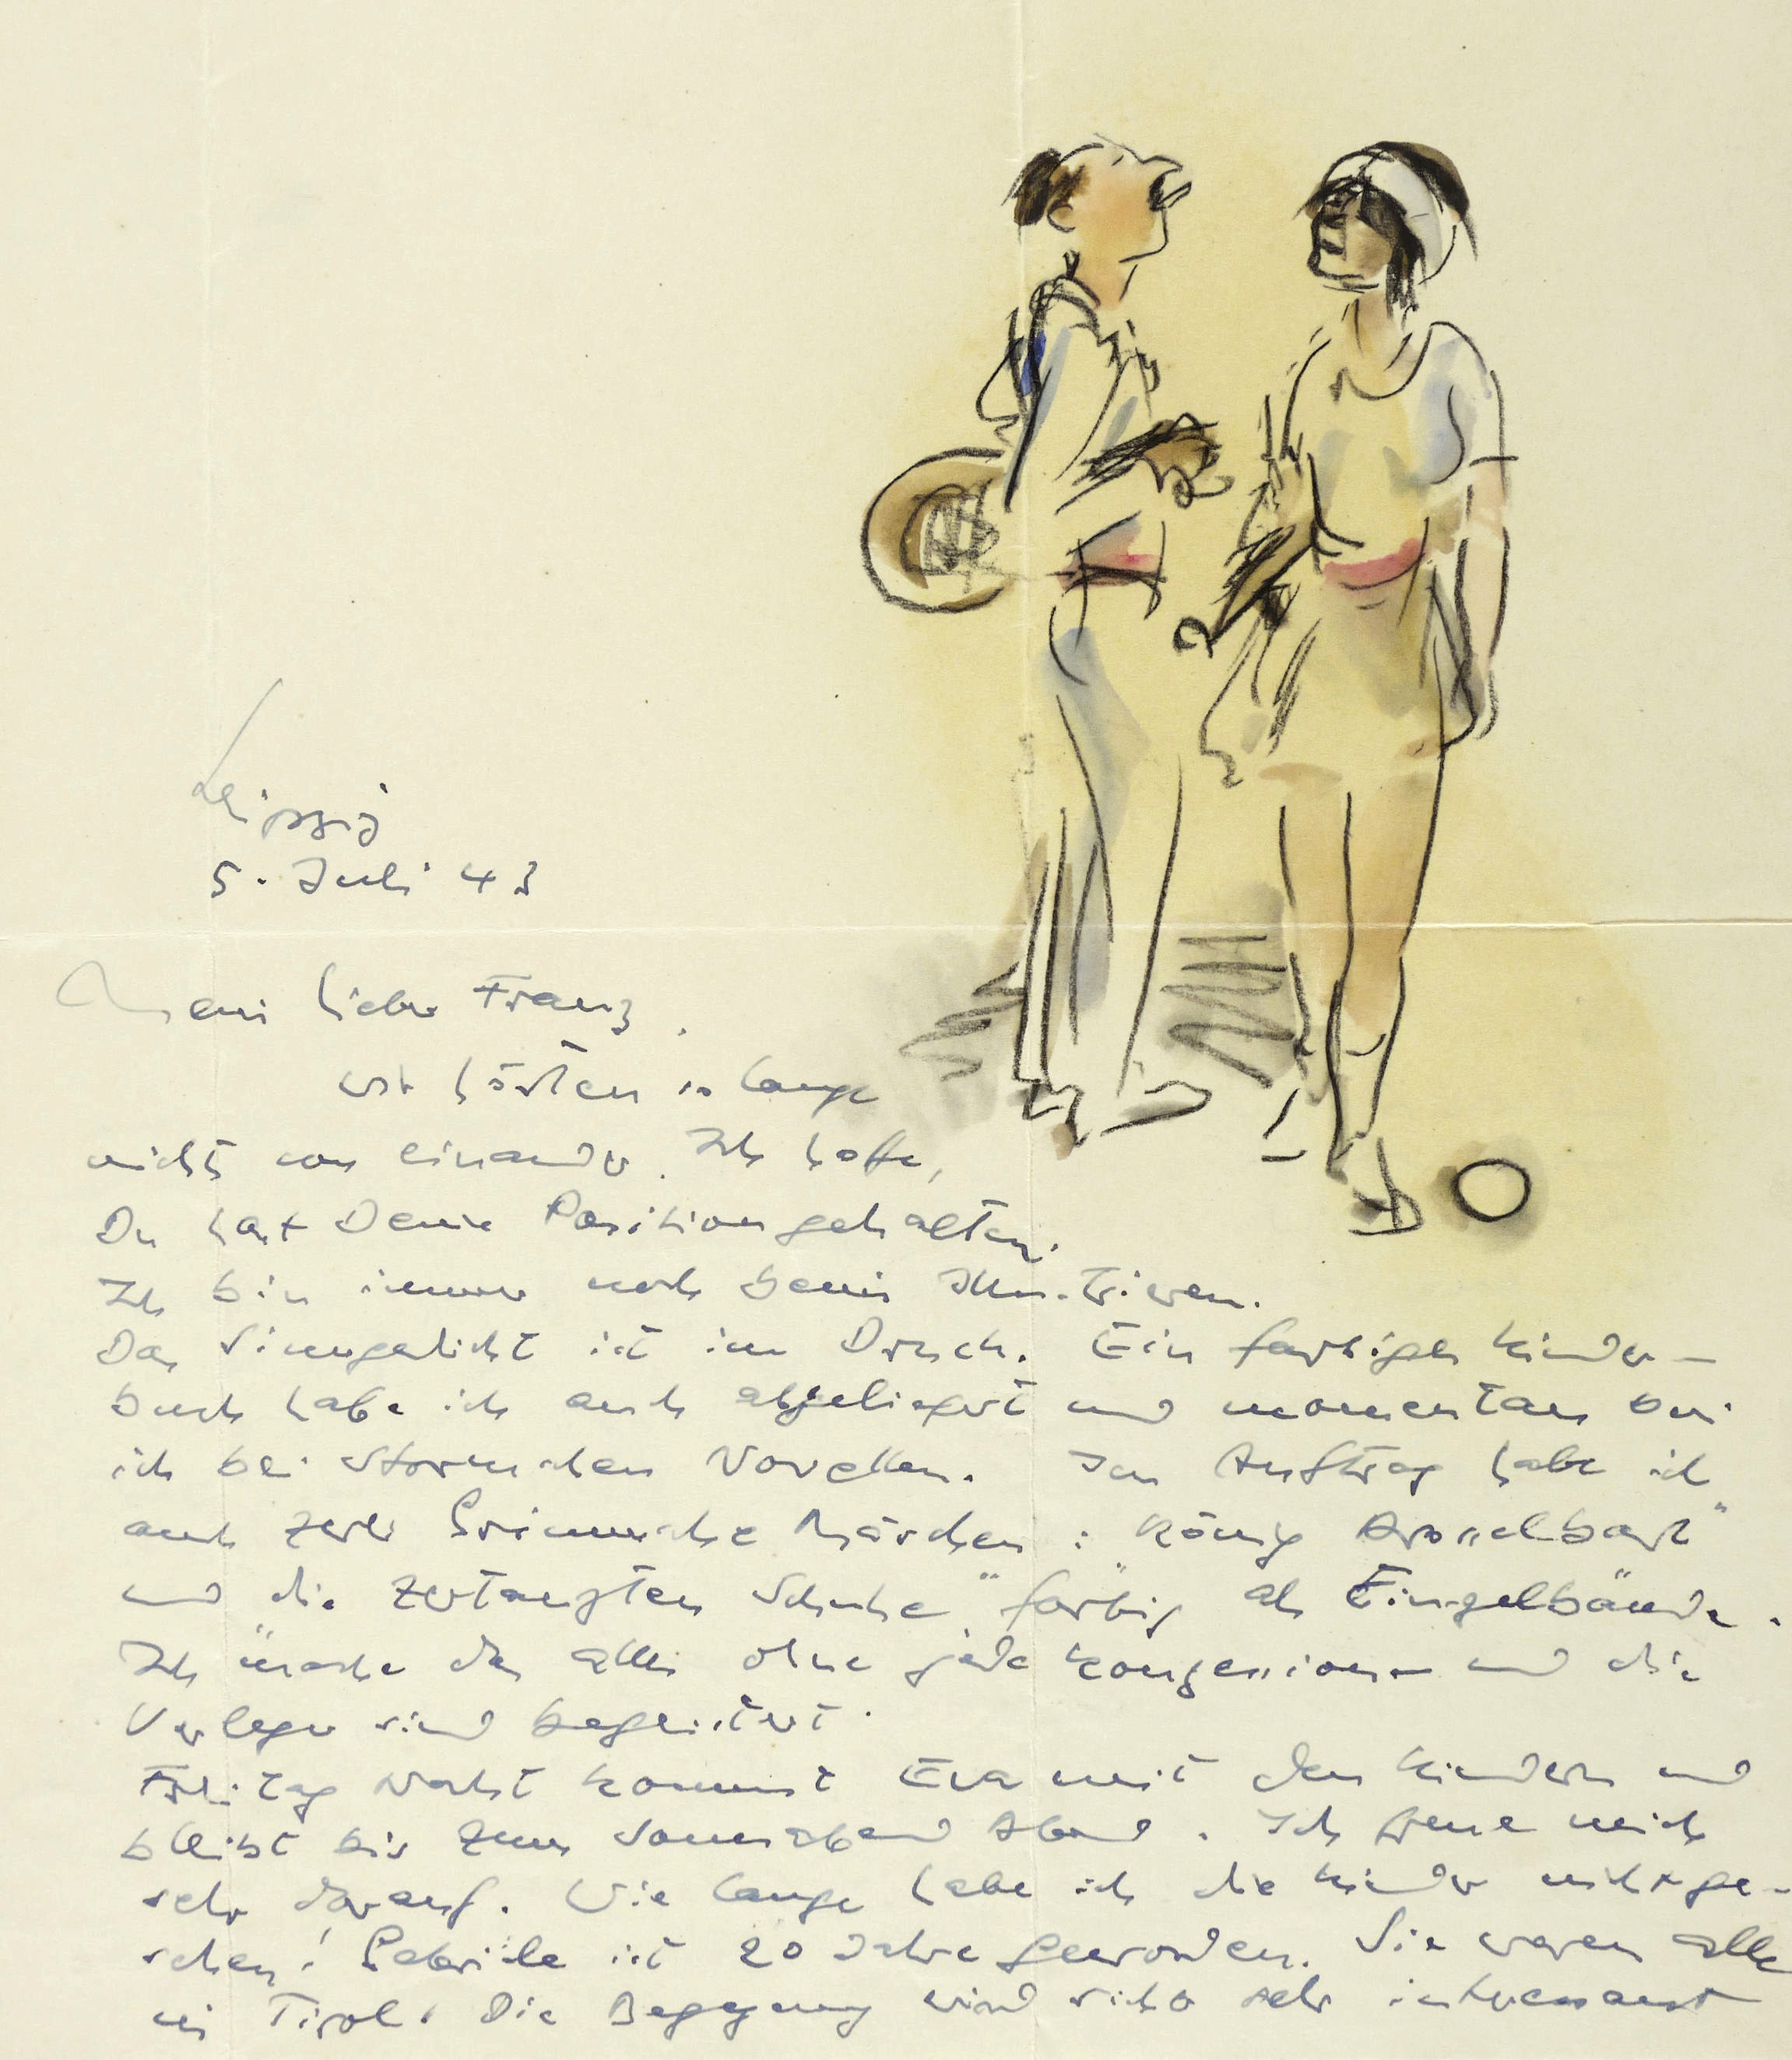 Leipzig
5. Juli 43
Mein lieber Franz,
wir hörten so lange
nichts von einander. Ich hoffe,
Du hast Deine Position gehalten.
Ich bin immer noch beim Illustrieren.
Das Sinngedicht ist im Druck. Ein farbiges Kinder-
buch habe ich auch abgeliefert und momentan bin
ich bei Stormschen Novellen. Im Auftrag habe ich
auch zwei Grimmsche Märchen: König Drosselbart"
und die zertanzten Schuhe" farbig als Einzelbände.
Ich mache das alles ohne jede Konzession und die
Verleger sind begeistert.
Freitag Nacht kommt Eva mit den Kindern und
bleibt bis zum Sonnabend Abend. Ich freue mich
sehr darauf. Wie lange habe ich die Kinder nicht ge-
sehen! Gabriele ist 20 Jahre geworden. Sie waren alle
in Tirol. Die Begegnung wird sicher sehr interessant